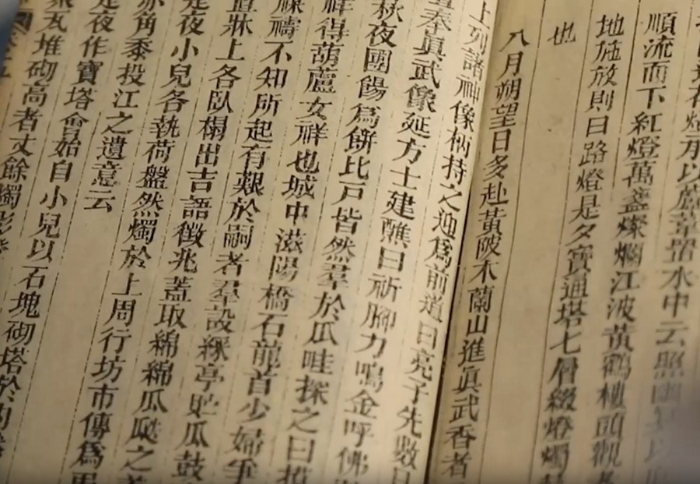 以蘆葦指水中云照
順流而下紅燈萬盞燦爛江波黃鶴樓頭觀
地施放則曰路燈是夕寶通塔七層綴燈燭
也
八月朔望日多赴黃陂木蘭山進眞武香者
上列諸神像柄持之迎爲前道曰亮子先數日
奉眞武像延方士建醮曰祈腳力鳴金呼佛
秋夜團餳爲餅比戸皆然羣於瓜哇探之曰摸
祥得葫蘆女祥也城中滋陽橋石龍首少婦爭
禖禱不知所起有艱於嗣者羣設綵亭貯瓜鼓
置牀上各臥榻出吉語徵兆蓋取綿綿瓜瓞之
是夜小兒各執荷盤然燭於上周行坊市傳爲
亦角黍投江之遺意云
是夜作寶塔會始自小兒以石塊砌塔於
瓦堆砌高者丈餘燭影